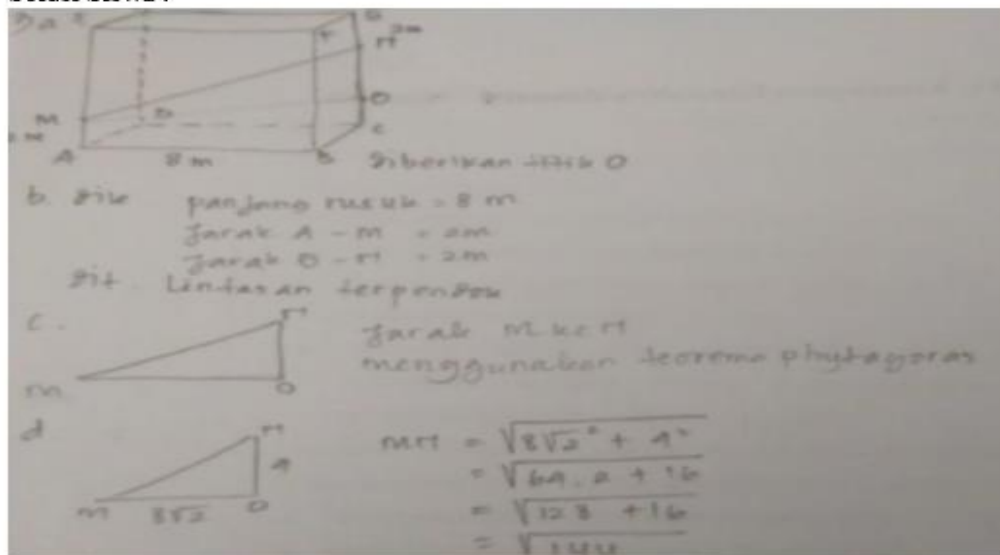 M
D
O
C
A
8 m
B
diberikan titik O
b. dik panjang rusuk = 8 m
Jarak A - M = 2m
Jarak = 2m
dit. Lintasan terpendek
c.
Jarak M ke
menggunakan teorema phytagoras
m
O
d
4
m 8√2 O
= √8√2² + 4²
= √64 . 2 + 16
= √128 + 16
= √144